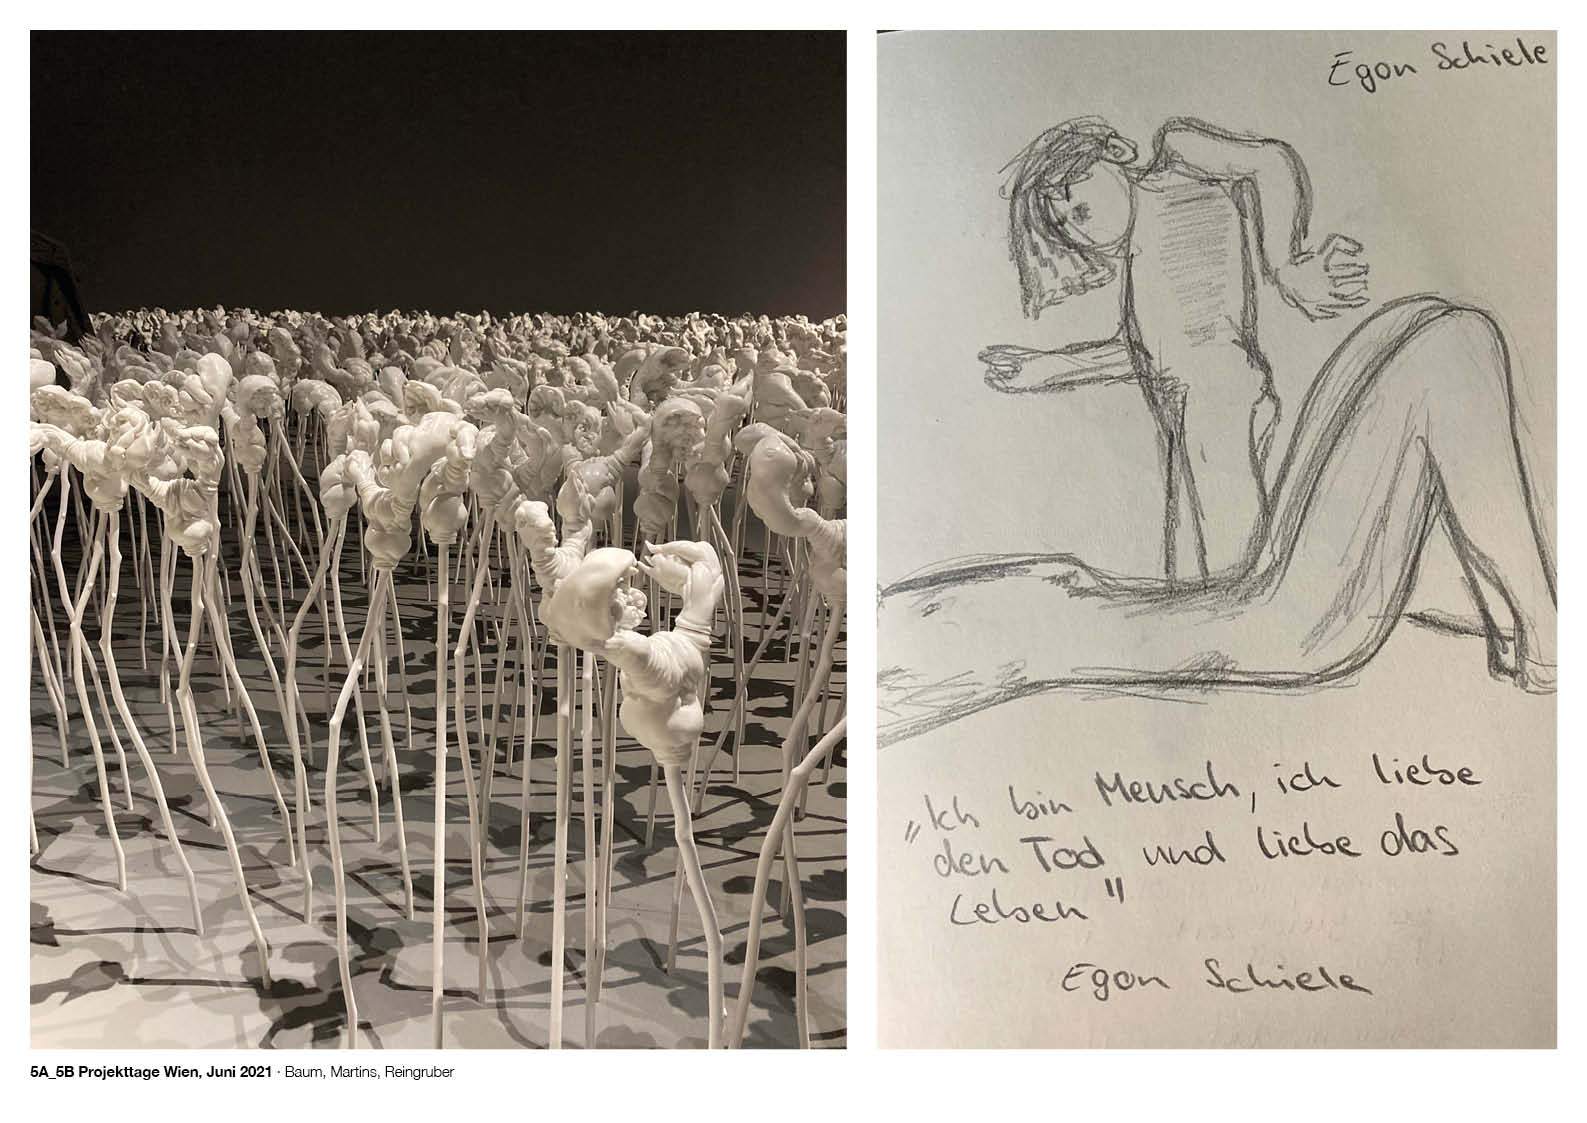 Egon Schiele
„Ich bin Mensch, ich liebe
den Tod und liebe das
Leben"
Egon Schiele
5A_5B Projekttage Wien, Juni 2021 · Baum, Martins, Reingruber